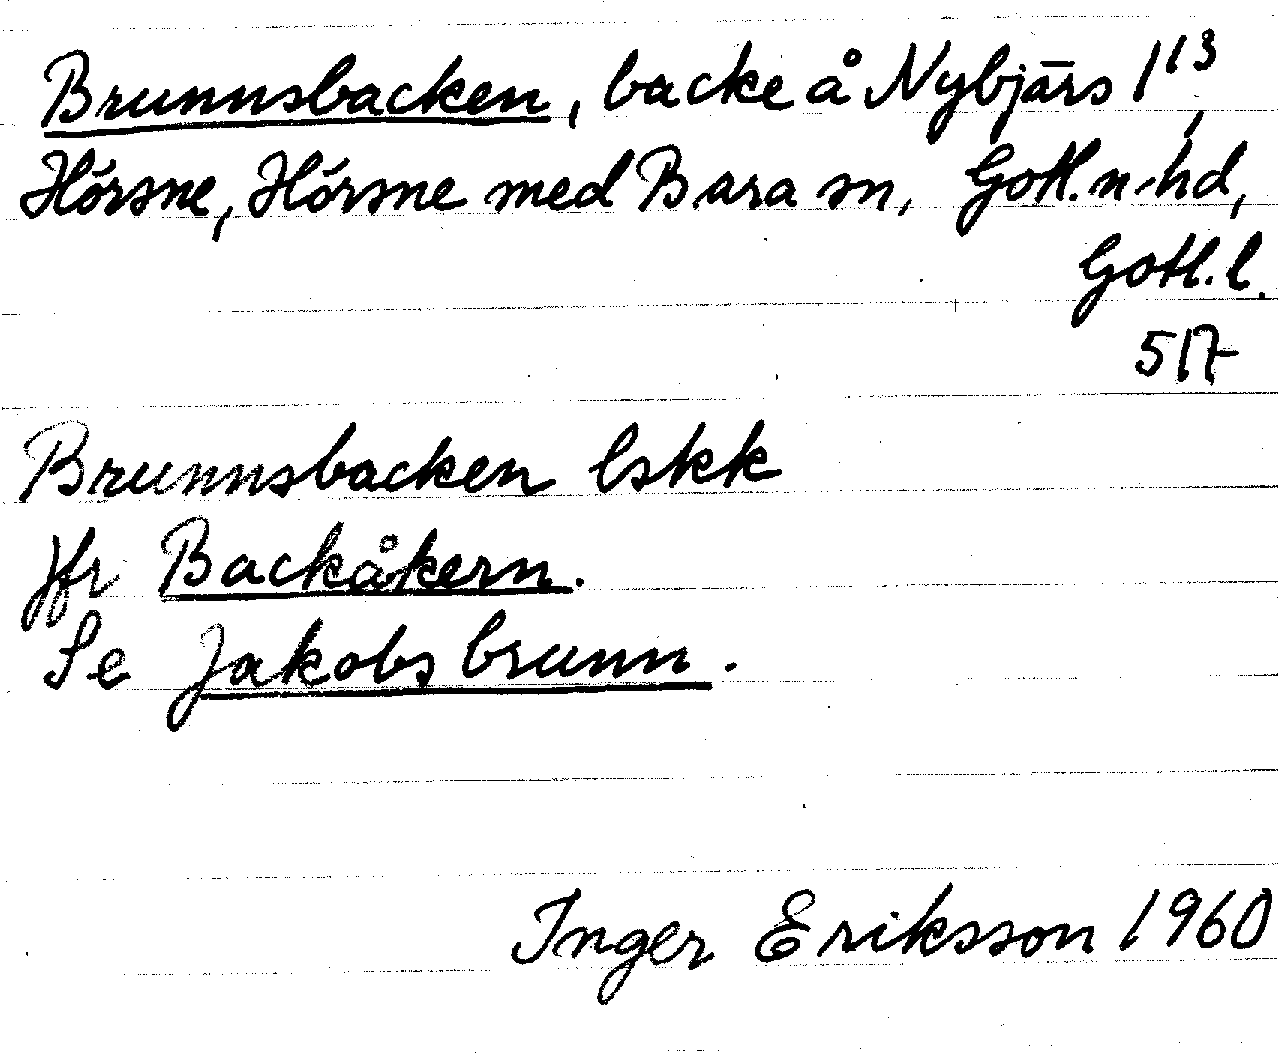 Brunnsbacken, backe å Nybjärs 1¹³,
Hörsne, Hörsne med Bara sn, Gotl. n. hd,
Gotl. l.
517
Brunnsbacken lskk
Jfr Backåkern.
Se Jakobsbrunn.
Inger Eriksson 1960